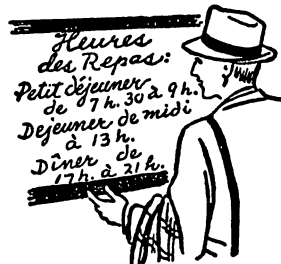 Heures
des Repas:
Petit déjeuner
de 7h.30 à 9h.
Dejeuner de midi
à 13h.
Dîner de
17h. à 21h.